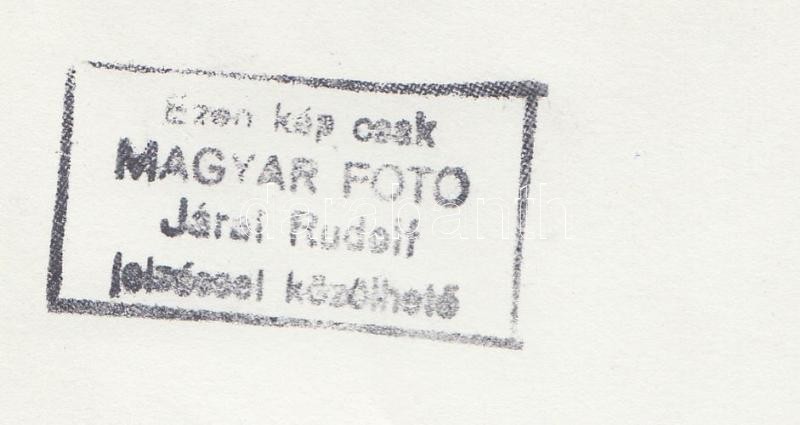 Ezen kép csak
MAGYAR FOTO
Járai Rudolf
jelzéssel közölhető
darabanth